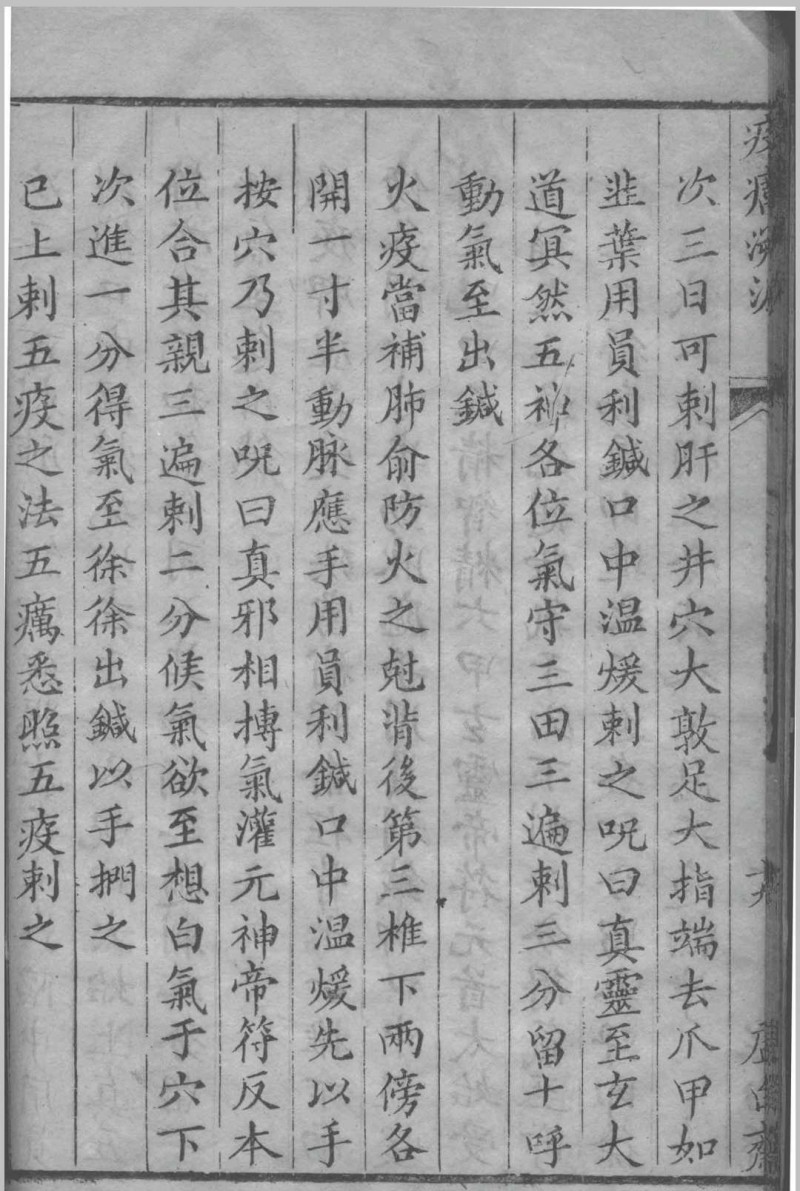 次三日可刺肝之井穴大敦足大指端去爪甲如
韭葉用員利鍼口中温煖刺之呪曰真靈至玄大
道冥然五神各位氣守三田三遍刺三分留十呼
動氣至出鍼
火疫當補肺俞防火之尅背後第三椎下兩傍各
開一寸半動脉應手用員利鍼口中温煖先以手
按穴乃刺之呪曰真邪相摶氣灌元神帝符反本
位合其親三遍刺二分候氣欲至想白氣于穴下
次進一分得氣至徐徐出鍼以手捫之
已上刺五疫之法五癘悉照五疫刺之